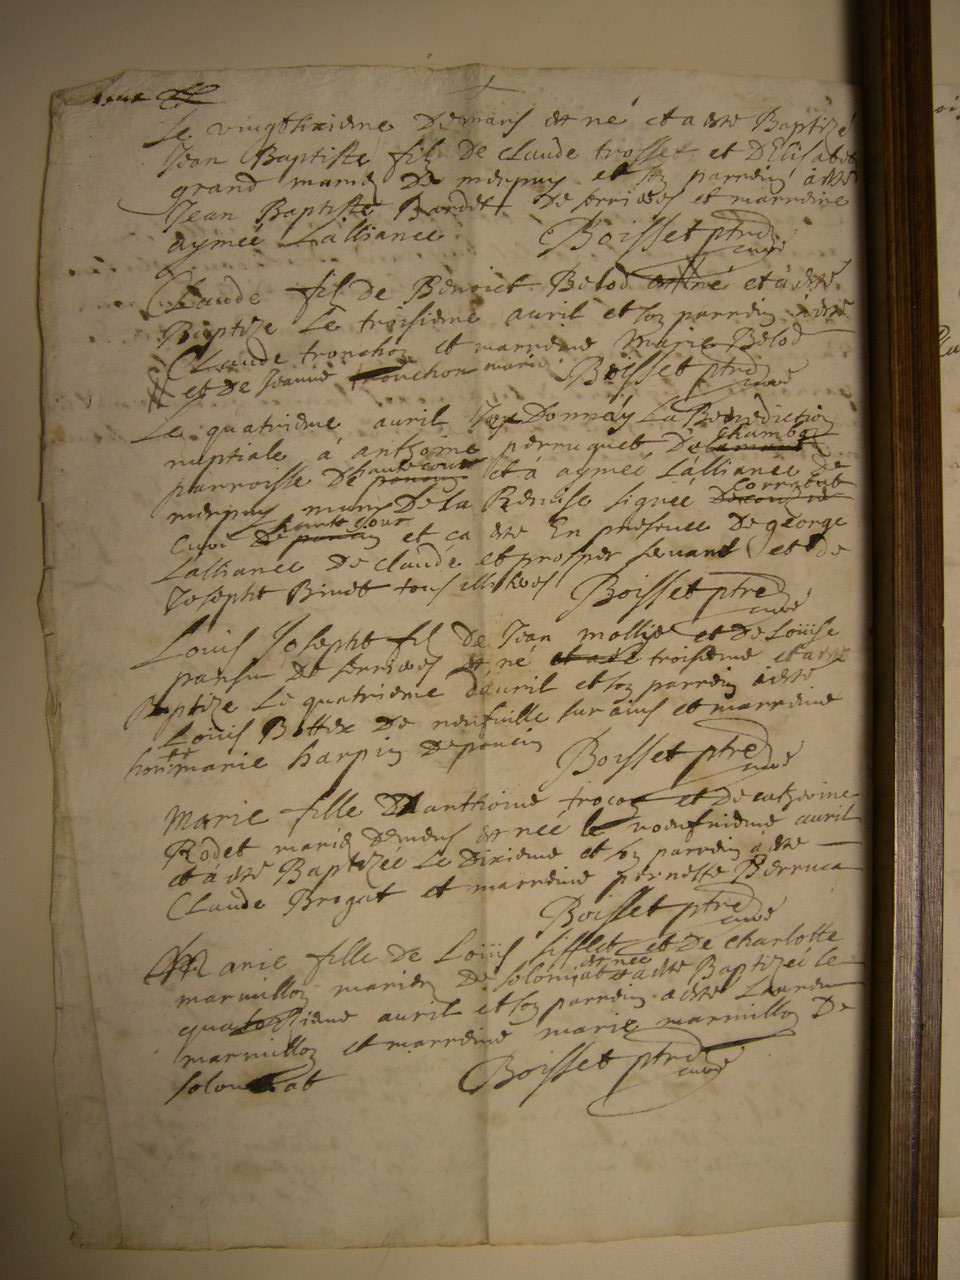 Le vingtsixieme De mars est né et a esté Baptizé
Jean Baptiste fils De claude trosset et D'Elisabet
grand mariez De merpuy et son parrein a esté
Jean Baptiste Bardet De serrieres et marreine
aymeé Lalliance Boisset ptre curé
Claude fils De Benoict Belod est né et à esté
Baptize Le troisieme auril et son parrein à esté
Claude tronchon et marreine Marie Belod
et De Jeanne tronchon mariez Boisset ptre curé
Le quatrieme auril J'ay Donneéy La Benediction
chambo
nuptiale à anthoine perruquet De
hautecour
parroisse De et à aymeé Lalliance De
merpuy muny De La Remise signeé
haute cour
Curé De et ce a esté En presence De george
Lalliance De claude et prosper seuant et de
Josepht Binet tous illiteres Boisset ptre curé
Louis Josepht fils De Jean mollie et De Loüise
pansu De serrieres est né troisieme et a esté
Baptize Le quatrieme d'auril et son parrein à esté
Louis Bottex De neufuille sur ains et marreine
marie harpin De poncin Boisset ptre curé
Marie fille D'anthoine trocon et De catherine
Rodet mariez De est neé le noeufuieme auril
et à esté Baptizeé Le Dixieme et son parrein à esté
Claude Brogat et marreine pernette Berruca
Boisset ptre curé
Marie fille De Loüis et De charlotte
est neé
marmillon mariez De solomiat a esté Baptizeé le
auril et son parrein a esté Laurent
marmillon et marreine marie marmillon De
solomiat Boisset ptre curé